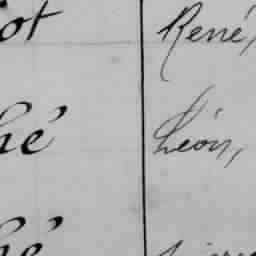 ot René,
hé Léon,
hé